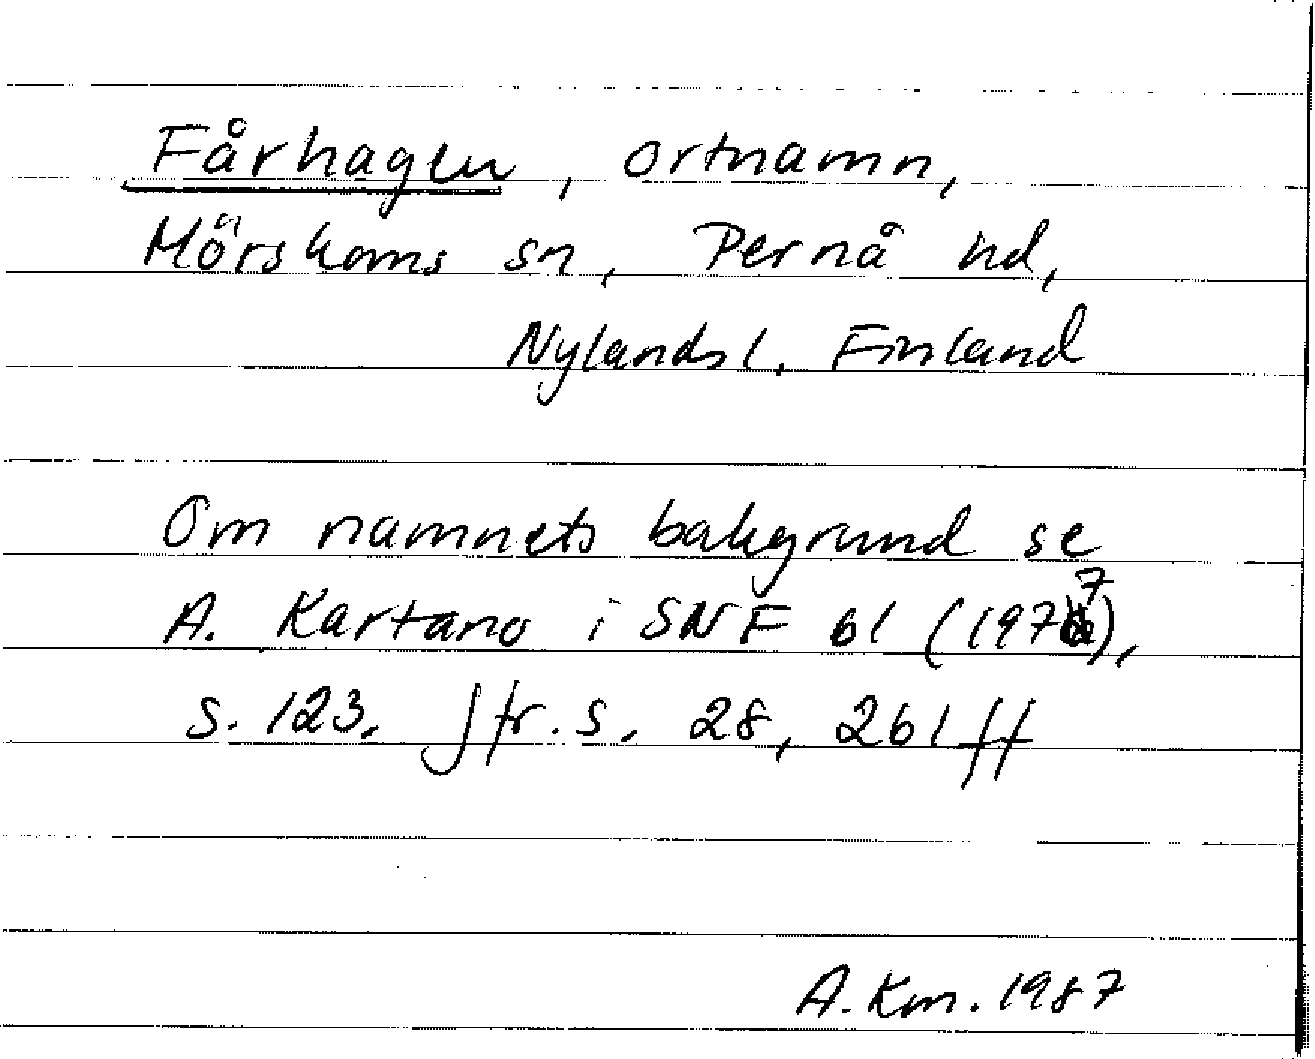 Fårhagen, ortnamn,
Mörskoms sn, Pernå hd,
Nylands l, Finland
Om namnets bakgrund se
A. Kartano i SNF 61 (1977),
s. 123. Jfr. s. 28, 261 ff
A. Km. 1987